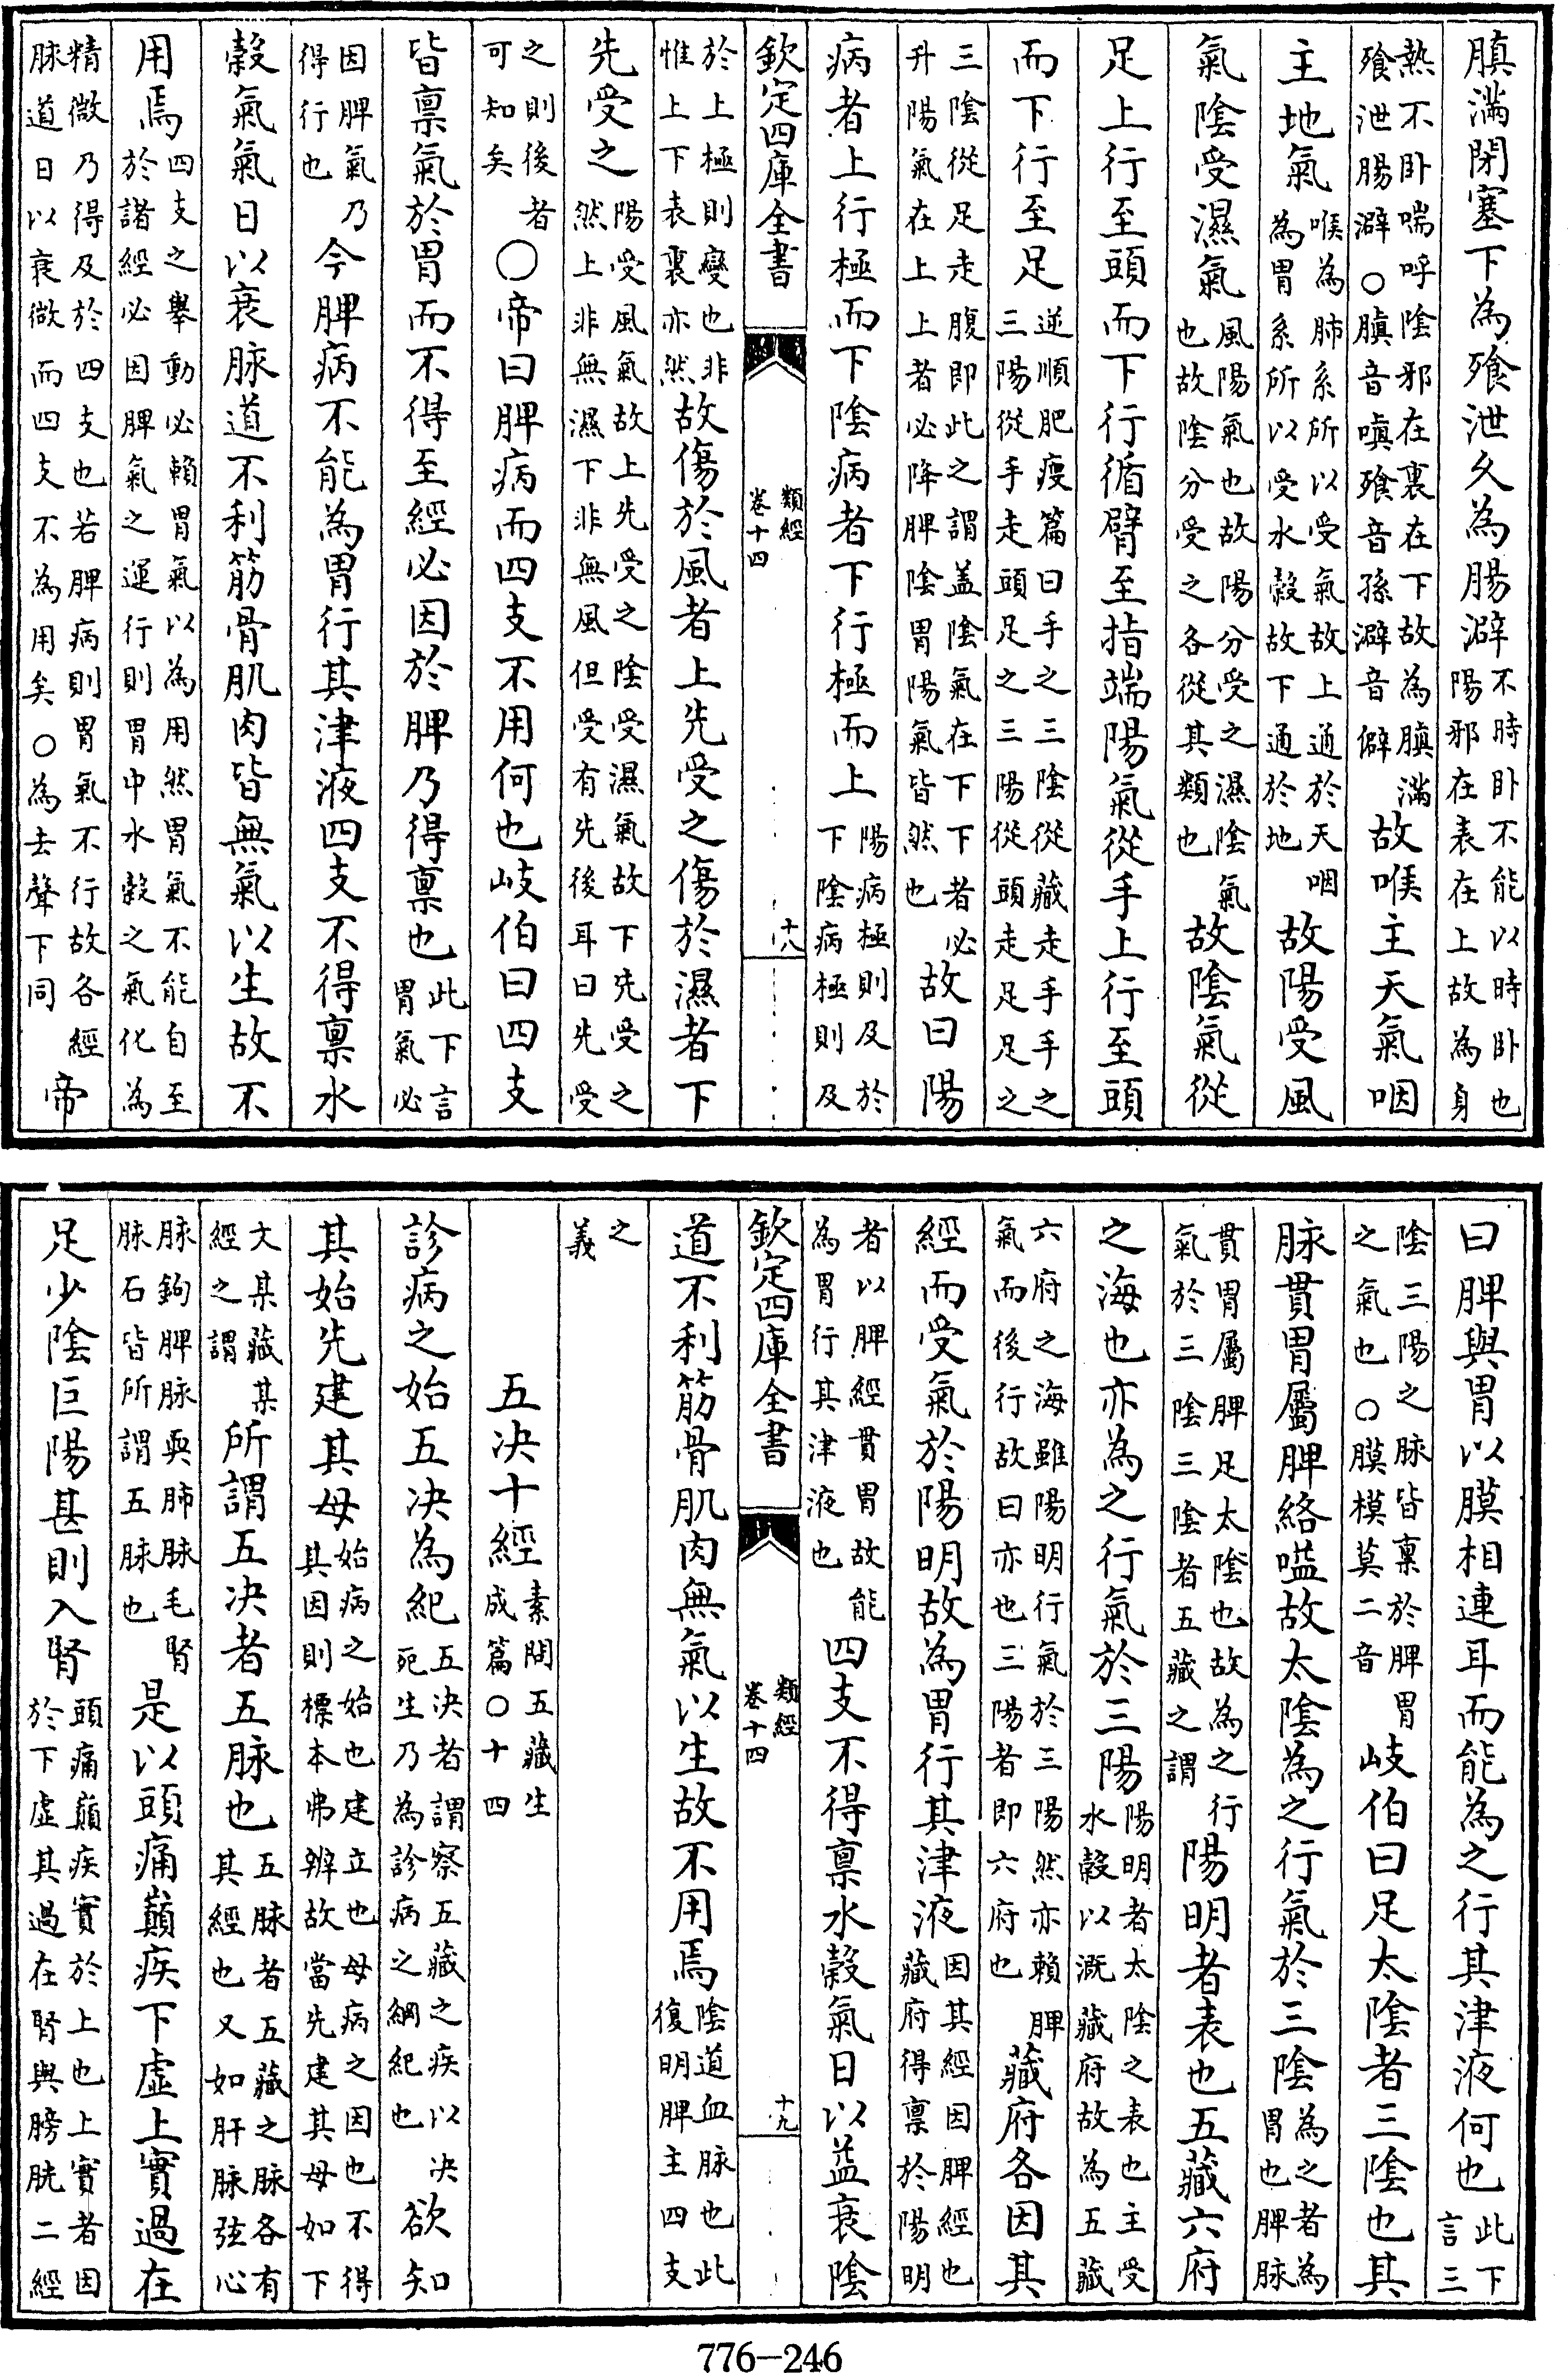 䐜滿閉塞下為飱泄久為腸澼不時卧不能以時卧也陽邪在表在上故為身
熱不卧喘呼陰邪在裏在下故為䐜滿飱泄腸澼○䐜音嗔飱音孫澼音僻故喉主天氣咽
主地氣喉為肺系所以受氣故上通於天咽為胃系所以受水穀故下通於地故陽受風
氣陰受濕氣風陽氣也故陽分受之濕陰氣也故陰分受之各從其類也故陰氣從
足上行至頭而下行循臂至指端陽氣從手上行至頭
而下行至足逆順肥瘦篇曰手之三陰從藏走手手之三陽從手走頭足之三陽從頭走足足之
三陰從足走腹即此之謂盖陰氣在下下者必升陽氣在上上者必降脾陰胃陽氣皆然也故曰陽
病者上行極而下陰病者下行極而上陽病極則及於下陰病極則及
欽定四庫全書 類經 卷十四 十八
於上上極則變也非惟上下表裏亦然故傷於風者上先受之傷於濕者下
先受之陽受風氣故上先受之陰受濕氣故下先受之然上非無濕下非無風但受有先後耳曰先受
之則後者可知矣○帝曰脾病而四支不用何也岐伯曰四支
皆禀氣於胃而不得至經必因於脾乃得禀也此下言胃氣必
因脾氣乃得行也今脾病不能為胃行其津液四支不得禀水
穀氣氣日以衰脉道不利筋骨肌肉皆無氣以生故不
用焉四支之舉動必賴胃氣以為用然胃氣不能自至於諸經必因脾氣之運行則胃中水穀之氣化為
精微乃得及於四支也若脾病則胃氣不行故各經脉道日以衰微而四支不為用矣○為去聲下同帝
曰脾與胃以膜相連耳而能為之行其津液何也此下言三
陰三陽之脉皆禀於脾胃之氣也○膜模莫二音岐伯曰足太陰者三陰也其
脉貫胃屬脾絡嗌故太陰為之行氣於三陰為之者為胃也脾脉
貫胃屬脾足太陰也故為之行氣於三陰三陰者五藏之謂陽明者表也五藏六府
之海也亦為之行氣於三陽陽明者太陰之表也主受水穀以溉藏府故為五藏
六府之海雖陽明行氣於三陽然亦賴脾氣而後行故曰亦也三陽者即六府也藏府各因其
經而受氣於陽明故為胃行其津液因其經因脾經也藏府得禀於陽明
者以脾經貫胃故能為胃行其津液也四支不得禀水穀氣日以益衰陰
欽定四庫全書 類經 卷十四 十九
道不利筋骨肌肉無氣以生故不用焉陰道血脉也此復明脾主四支
之義
五决十經素問五藏生成篇○十四
診病之始五决為紀五决者謂察五藏之疾以决死生乃為診病之綱紀也欲知
其始先建其母始病之始也建立也母病之因也不得其因則標本弗辨故當先建其母如下
文某藏某經之謂所謂五决者五脉也五脉者五藏之脉各有其經也又如肝脉弦心
脉鉤脾脉耎肺脉毛腎脉石皆所謂五脉也是以頭痛巔疾下虛上實過在
足少陰巨陽甚則入腎頭痛巔疾實於上也上實者因於下虛其過在腎與膀胱二經
776-246